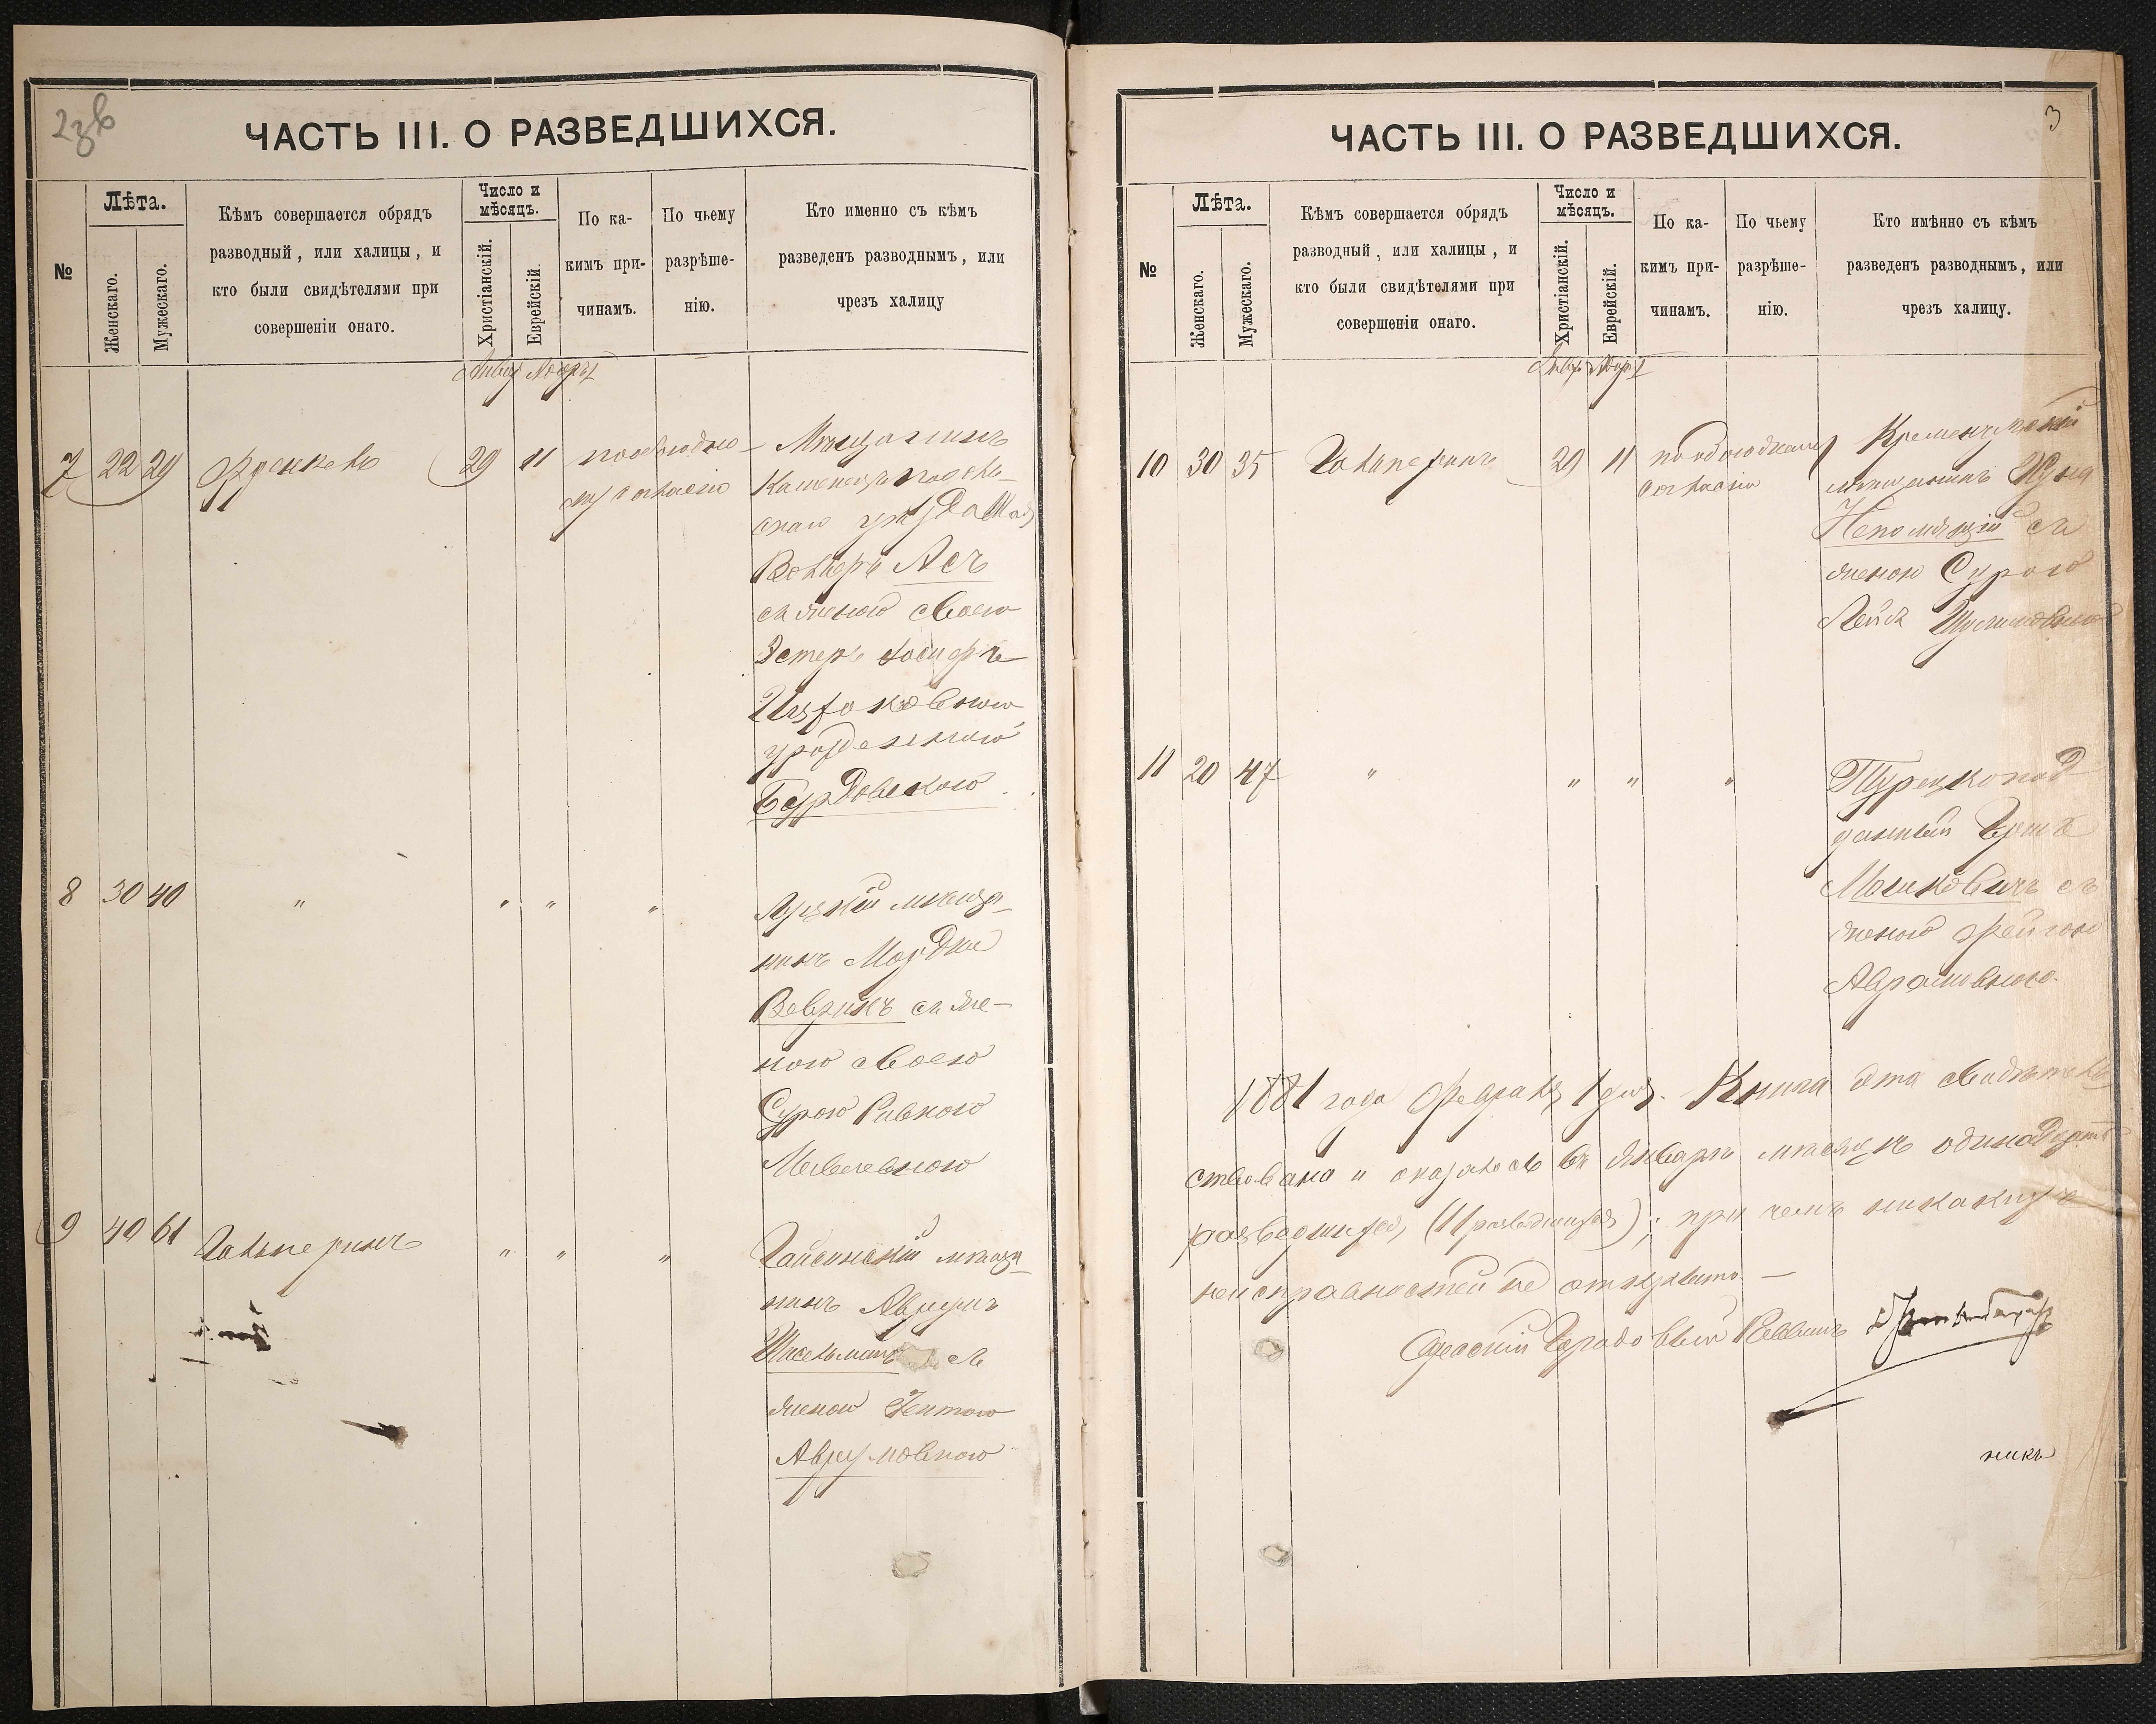 ЧАСТЬ III. О РАЗВЕДШИХСЯ.
№
Лѣта.
Женскаго.
Мужескаго.
Кѣмъ совершается обрядъ
разводный, или халицы, и
кто были свидѣтелями при
совершеніи онаго.
Число и
мѣсяцъ.
Христіанскій.
Еврейскій.
По ка-
кимъ при-
чинамъ.
По чьему
разрѣше-
нію.
Кто именно съ кѣмъ
разведенъ разводнымъ, или
чрезъ халицу
7 22 29 Френкель 29 11 по обоюдно-
му согласію
Мѣщанинъ
Каменецъ подоль-
скаго уѣзда
Вольфъ Асъ
съ женою своею
Эстеръ
Ицековною
урожденною
Бурдовскою.
8 30 40 " " " "
мѣща-
нинъ Мордко
Веврикъ съ же-
ною своею
Сурою Ривкою
9 49 61 Гальперинъ " " "
Гайсинскій мѣща-
нинъ Аврумъ
Шисельманъ съ
женою Гентою
Аврумовною
ЧАСТЬ III. О РАЗВЕДШИХСЯ.
3
№
Лѣта.
Женскаго.
Мужескаго.
Кѣмъ совершается обрядъ
разводный, или халицы, и
кто были свидѣтелями при
совершеніи онаго.
Число и
мѣсяцъ.
Христіанскій.
Еврейскій.
По ка-
кимъ при-
чинамъ.
По чьему
разрѣше-
нію.
Кто имѣнно съ кѣмъ
разведенъ разводнымъ, или
чрезъ халицу.
10 30 35 Гальперинъ 29 11 по обоюдному
согласію
Кременчугскій
мѣщанинъ
Непомнящій съ
женою Сурою
Лейей
11 20 47 " " " "
Турецкоподд
данный Герш
Мошковичъ съ
женою Фейгою
Абрамовною.
1881 года Февраля 1 дня. Книга эта свидѣтель
ствована и оказалось въ Январѣ мѣсяцѣ одинадцать
разведшихся (11 разведшихся); при чемъ никакихъ
неисправностей не открыто. —
Одесскій Городовый Раввинъ